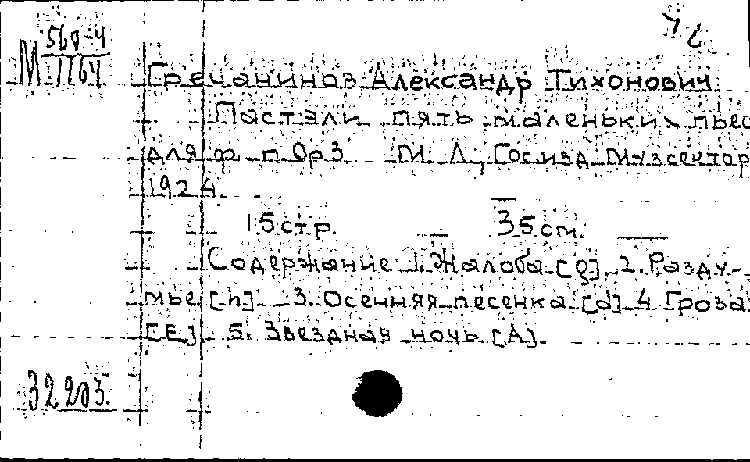 М 560-4
1164
Гречанинов Александр Тихонович
Пастали пять маленьких пьес
для ф-п Ор3 М. Л, Госизд Музсектор
1924.
15 стр. 35 см.
Содержание 1. Жалоба [g] 2. Разду-
мье [h] 3. Осенняя песенка [d] 4 Гроза
[E] 5. Звездная ночь [A].
32203.